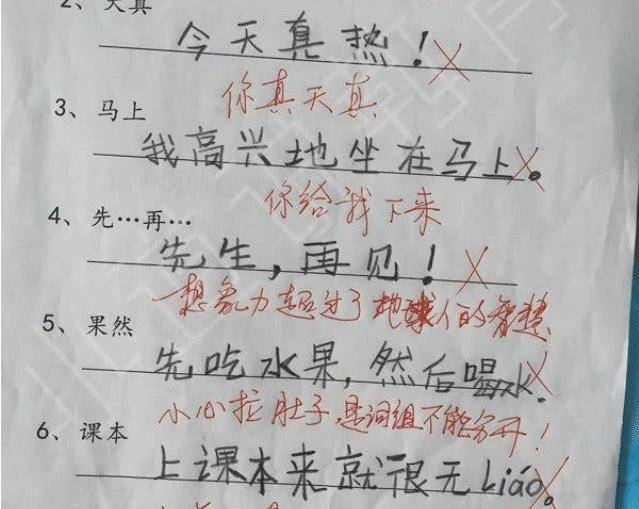 2、天真
今天真热！
你真天真
3、马上
我高兴地坐在马上。
你给我下来
4、先…再…
先生，再见！
想象力超过了地球人的智慧
5、果然
先吃水果，然后喝水．
小心拉肚子，是词组不能分开！
6、课本
上课本来就很无Liáo。